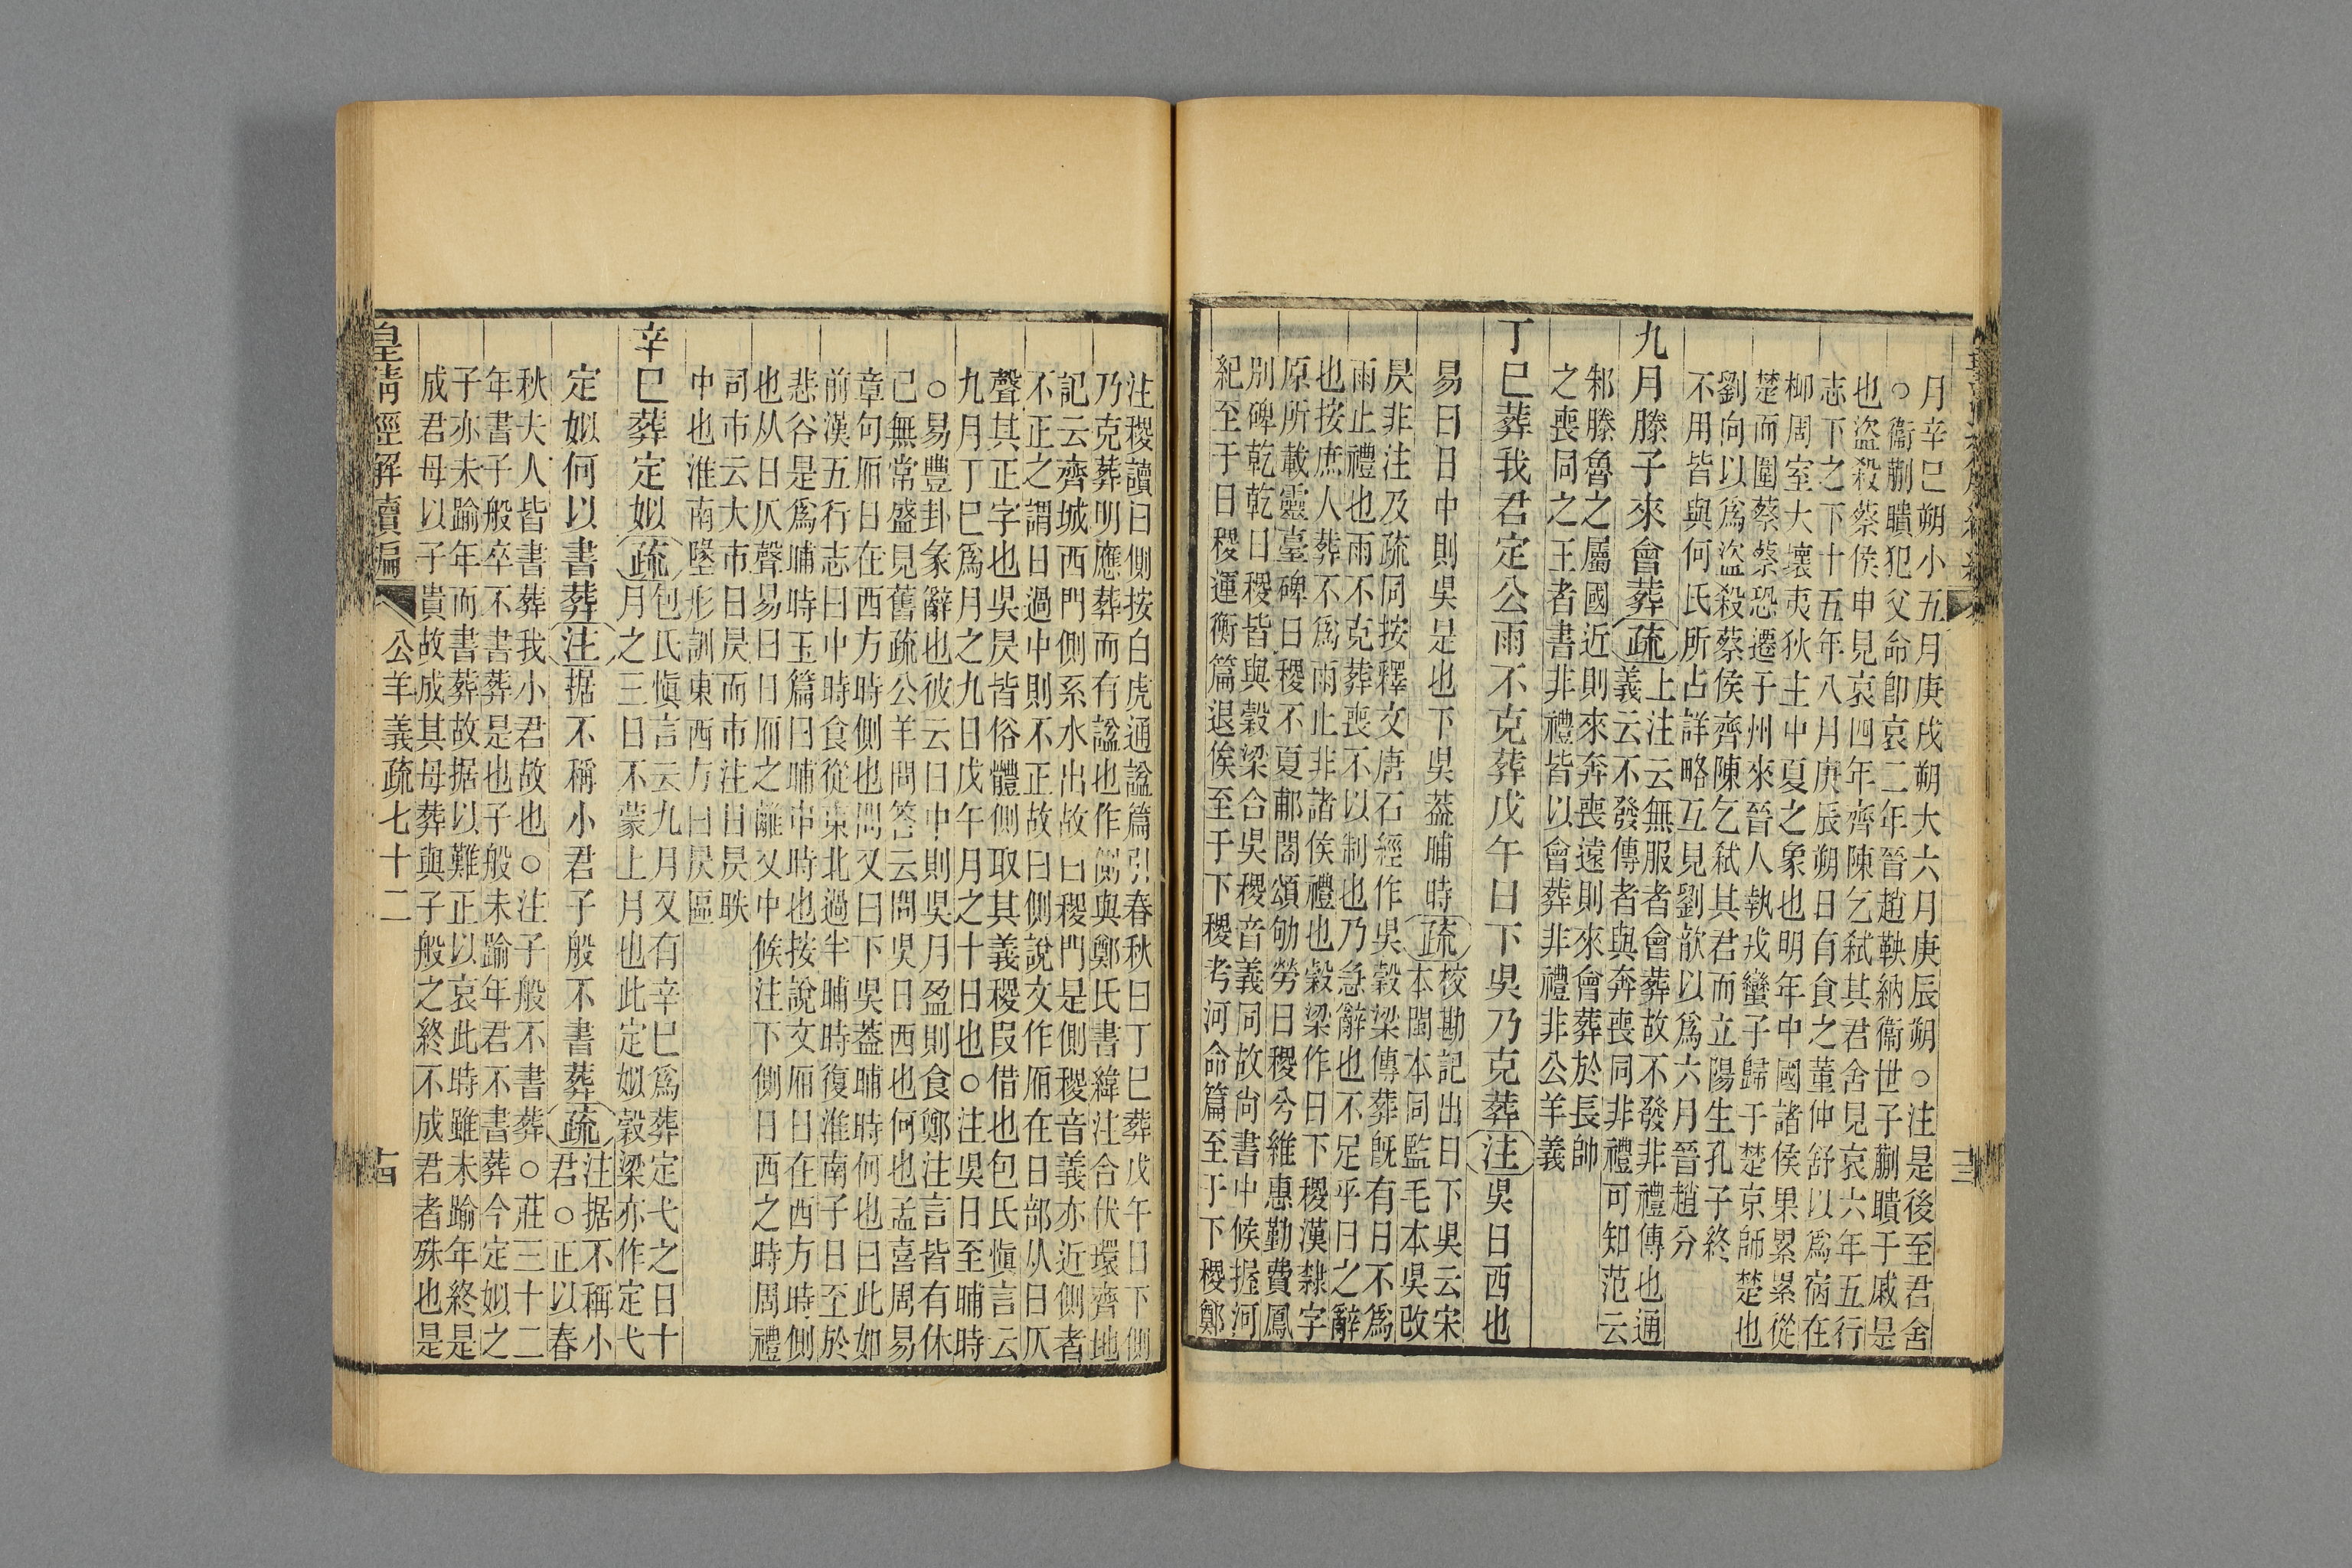 月辛巳朔小五月庚戌朔大六月庚辰朔○注是後至君舍
○衞蒯聵犯父命卽哀二年晉趙鞅納衞世子蒯聵于戚是
也盜殺蔡侯申見哀四年齊陳乞弒其君舍見哀六年五行
志下之下十五年八月庚辰朔日有食之董仲舒以爲宿在
柳周室大壞夷狄主中夏之象也明年中國諸侯果累累從
楚而圍蔡蔡恐遷于州來晉人執戎蠻子歸于楚京師楚也
劉向以爲盜殺蔡侯齊陳乞弒其君而立陽生孔子終
不用皆與何氏所占詳略互見劉歆以爲六月晉趙分
九月滕子來會葬疏上注云無服者會葬故不發非禮傳也通
義云不發傳者與奔喪同非禮可知范云
邾滕魯之屬國近則來奔喪遠則來會葬於長帥
之喪同之王者書非禮皆以會葬非禮非公羊義
丁巳葬我君定公雨不克葬戊午日下吳乃克葬注吳日西也
易曰日中則吳是也下吳葢晡時疏校勘記出日下吳云宋
本閩本同監毛本吳改
昃非注及疏同按釋文唐石經作吳穀梁傳葬旣有日不爲
雨止禮也雨不克葬喪不以制也乃急辭也不足乎日之辭
也按庶人葬不爲雨止非諸侯禮也穀梁作日下稷漢隸字
原所載靈臺碑日稷不夏郙閣頌劬勞日稷兮維惠勤費鳳
別碑乾乾日稷皆與穀梁合吳稷音義同故尚書中候握河
紀至于日稷運衡篇退俟至于下稷考河命篇至于下稷鄭
注稷讀曰側按白虎通諡篇引春秋曰丁巳葬戊午日下側
乃克葬明應葬而有諡也作側與鄭氏書緯注合伏環齊地
記云齊城西門側系水出故曰稷門是側稷音義亦近側者
不正之謂日過中則不正故曰側說文作厢在日部从日仄
聲其正字也吳昃皆俗體側取其義稷叚借也包氏愼言云
九月丁巳爲月之九日戊午月之十日也○注吳日至晡時
○易豐卦彖辭也彼云日中則吳月盈則食鄭注言皆有休
已無常盛見舊疏公羊問答云問吳日西也何也孟喜周易
章句厢日在西方時側也問又曰下吳葢晡時何也曰此如
前漢五行志曰中時食從東北過半晡時復淮南子日至於
悲谷是爲晡時玉篇曰晡申時也按說文厢日在西方時側
也从日仄聲易曰日厢之離又中候注下側日西之時周禮
司市云大市日昃而市注日昃昳
中也淮南墜形訓東西方曰昃區
辛巳葬定姒疏包氏愼言云九月又有辛巳爲葬定弋之日十
月之三日不蒙上月也此定姒穀梁亦作定弋
定姒何以書葬注据不稱小君子般不書葬疏注据不稱小
君○正以春
秋夫人皆書葬我小君故也○注子般不書葬○莊三十二
年書子般卒不書葬是也子般未踰年君不書葬今定姒之
子亦未踰年而書葬故据以難正以哀此時雖未踰年終是
成君母以子貴故成其母葬與子般之終不成君者殊也是
皇清經解續編 公羊義疏七十二 十四